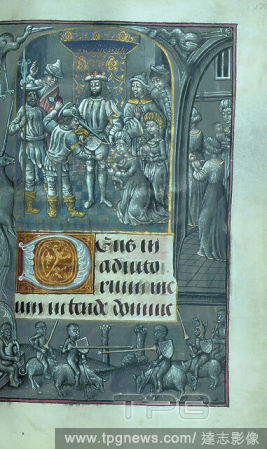 Deus in
adiuto
rium me
um intende domine
TPG
www.tpgnews.com/ 達志影像